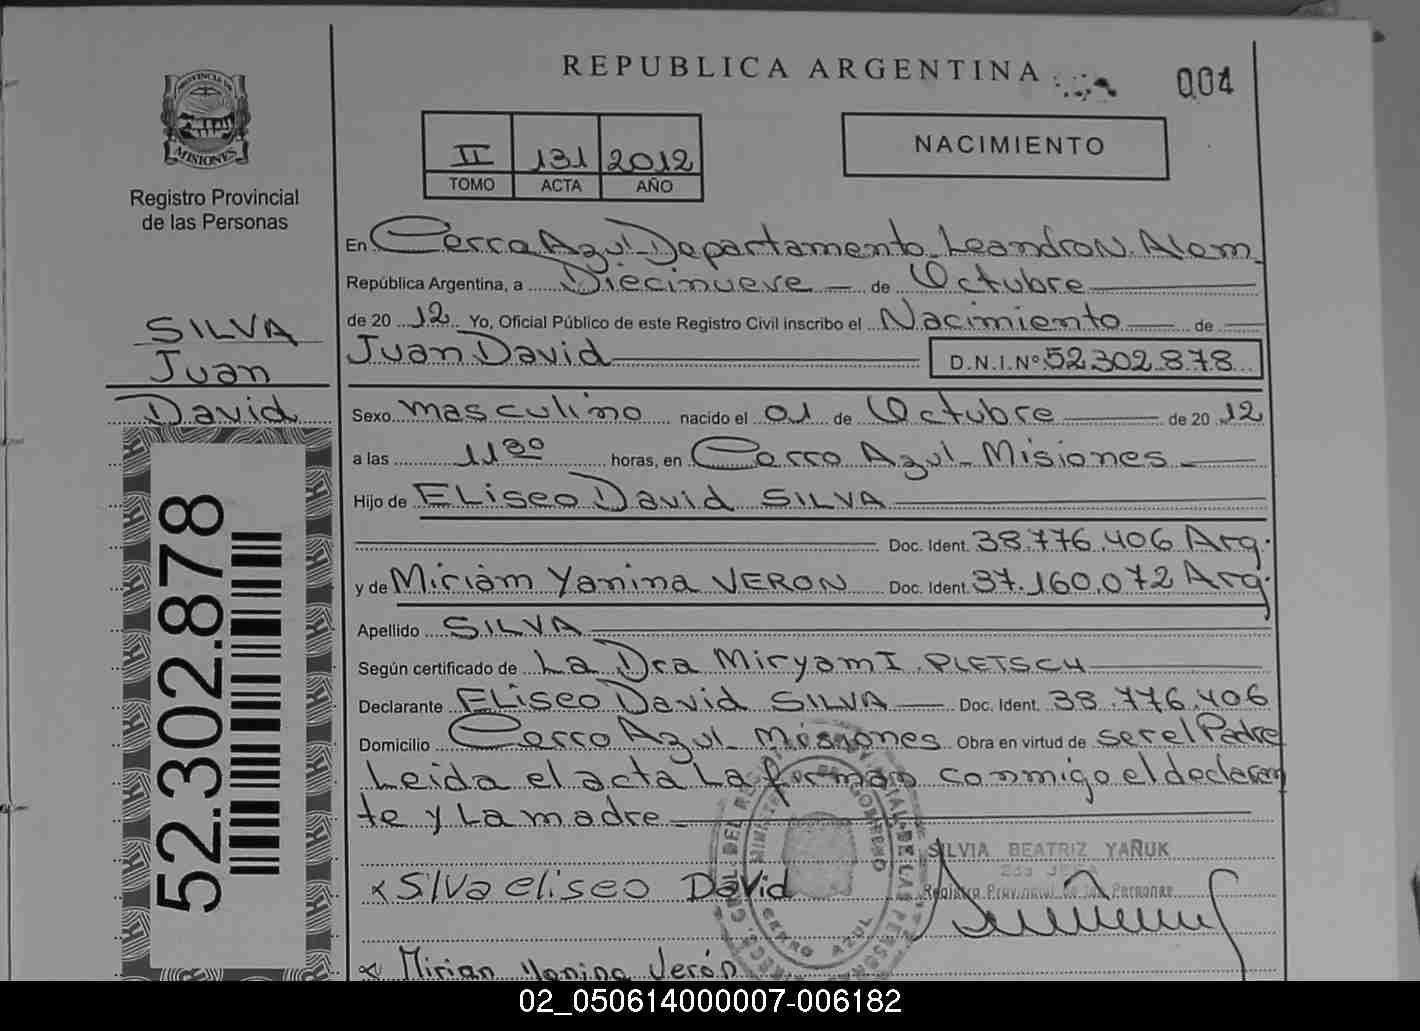 REPUBLICA ARGENTINA
004
PROVINCIA DE
MISIONES
Registro Provincial
de las Personas
II 131 2012
TOMO ACTA AÑO
NACIMIENTO
En Cerro Azul - Departamento Leandro N. Alem
República Argentina, a Diecinueve de Octubre
de 20 12 Yo, Oficial Público de este Registro Civil inscribo el Nacimiento de
Juan David D.N.I. Nº 52.302.878
SILVA
Juan
David
Sexo masculino nacido el 01 de Octubre de 20 12
a las 11 30 horas, en Cerro Azul - Misiones
Hijo de ELiseo David SILVA
Doc. Ident. 38.776.406 Arg.
y de Miriam Yanina VERON Doc. Ident. 37.160.072 Arg.
Apellido SILVA
Según certificado de La Dra Miryam I. PLETSCH
Declarante ELiseo David SILVA Doc. Ident. 38.776.406
Domicilio Cerro Azul - Misiones Obra en virtud de ser el Padre
Leida el acta La firman conmigo el declaran
te y La madre
52.302.878
SILVIA BEATRIZ YAÑUK
Registro Provincial de las Personas
x Silva eliseo David
CERRO AZUL
x Mirian Yanina Verón
02_050614000007-006182